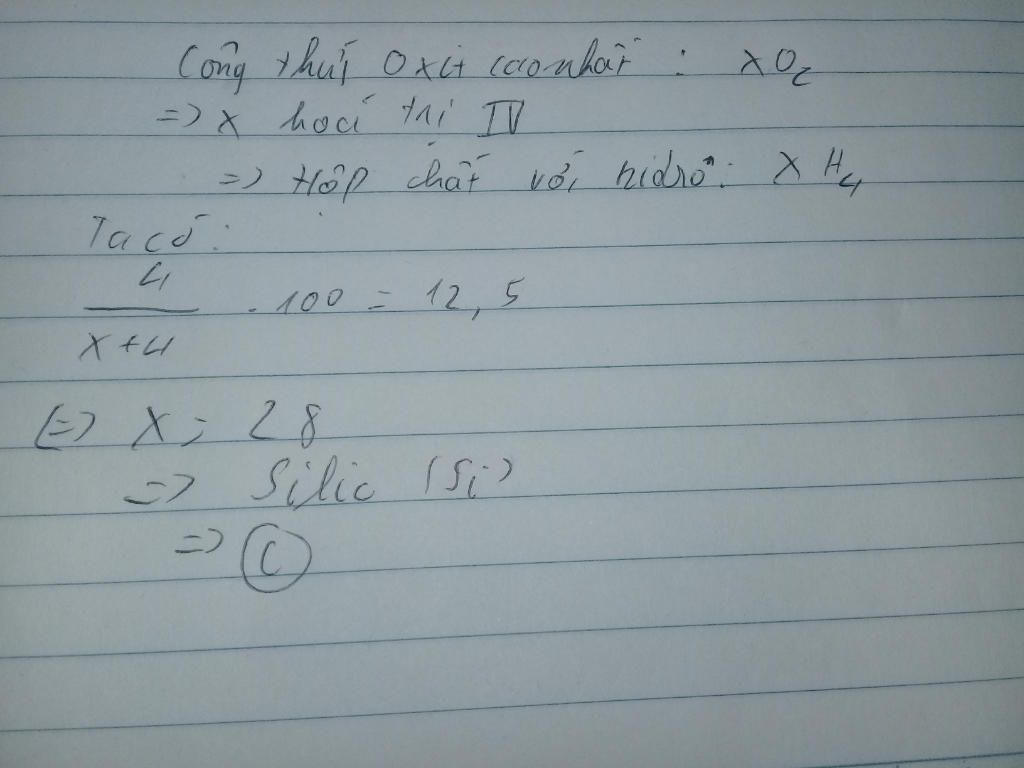 Công thức Oxit cao nhất : XO2
=> X hoá trị IV
=> Hợp chất với hidro : XH4
Ta có :
4
/ X+4 . 100 = 12,5
<=> X = 28
=> Silic (Si)
=> C